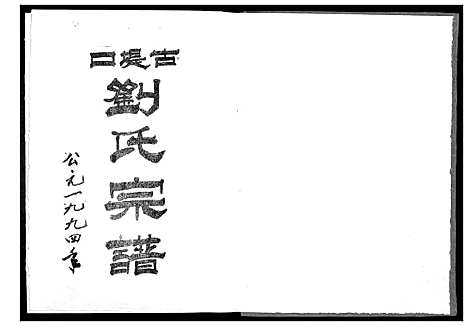 古堤口
劉氏宗譜
公元一九九四年